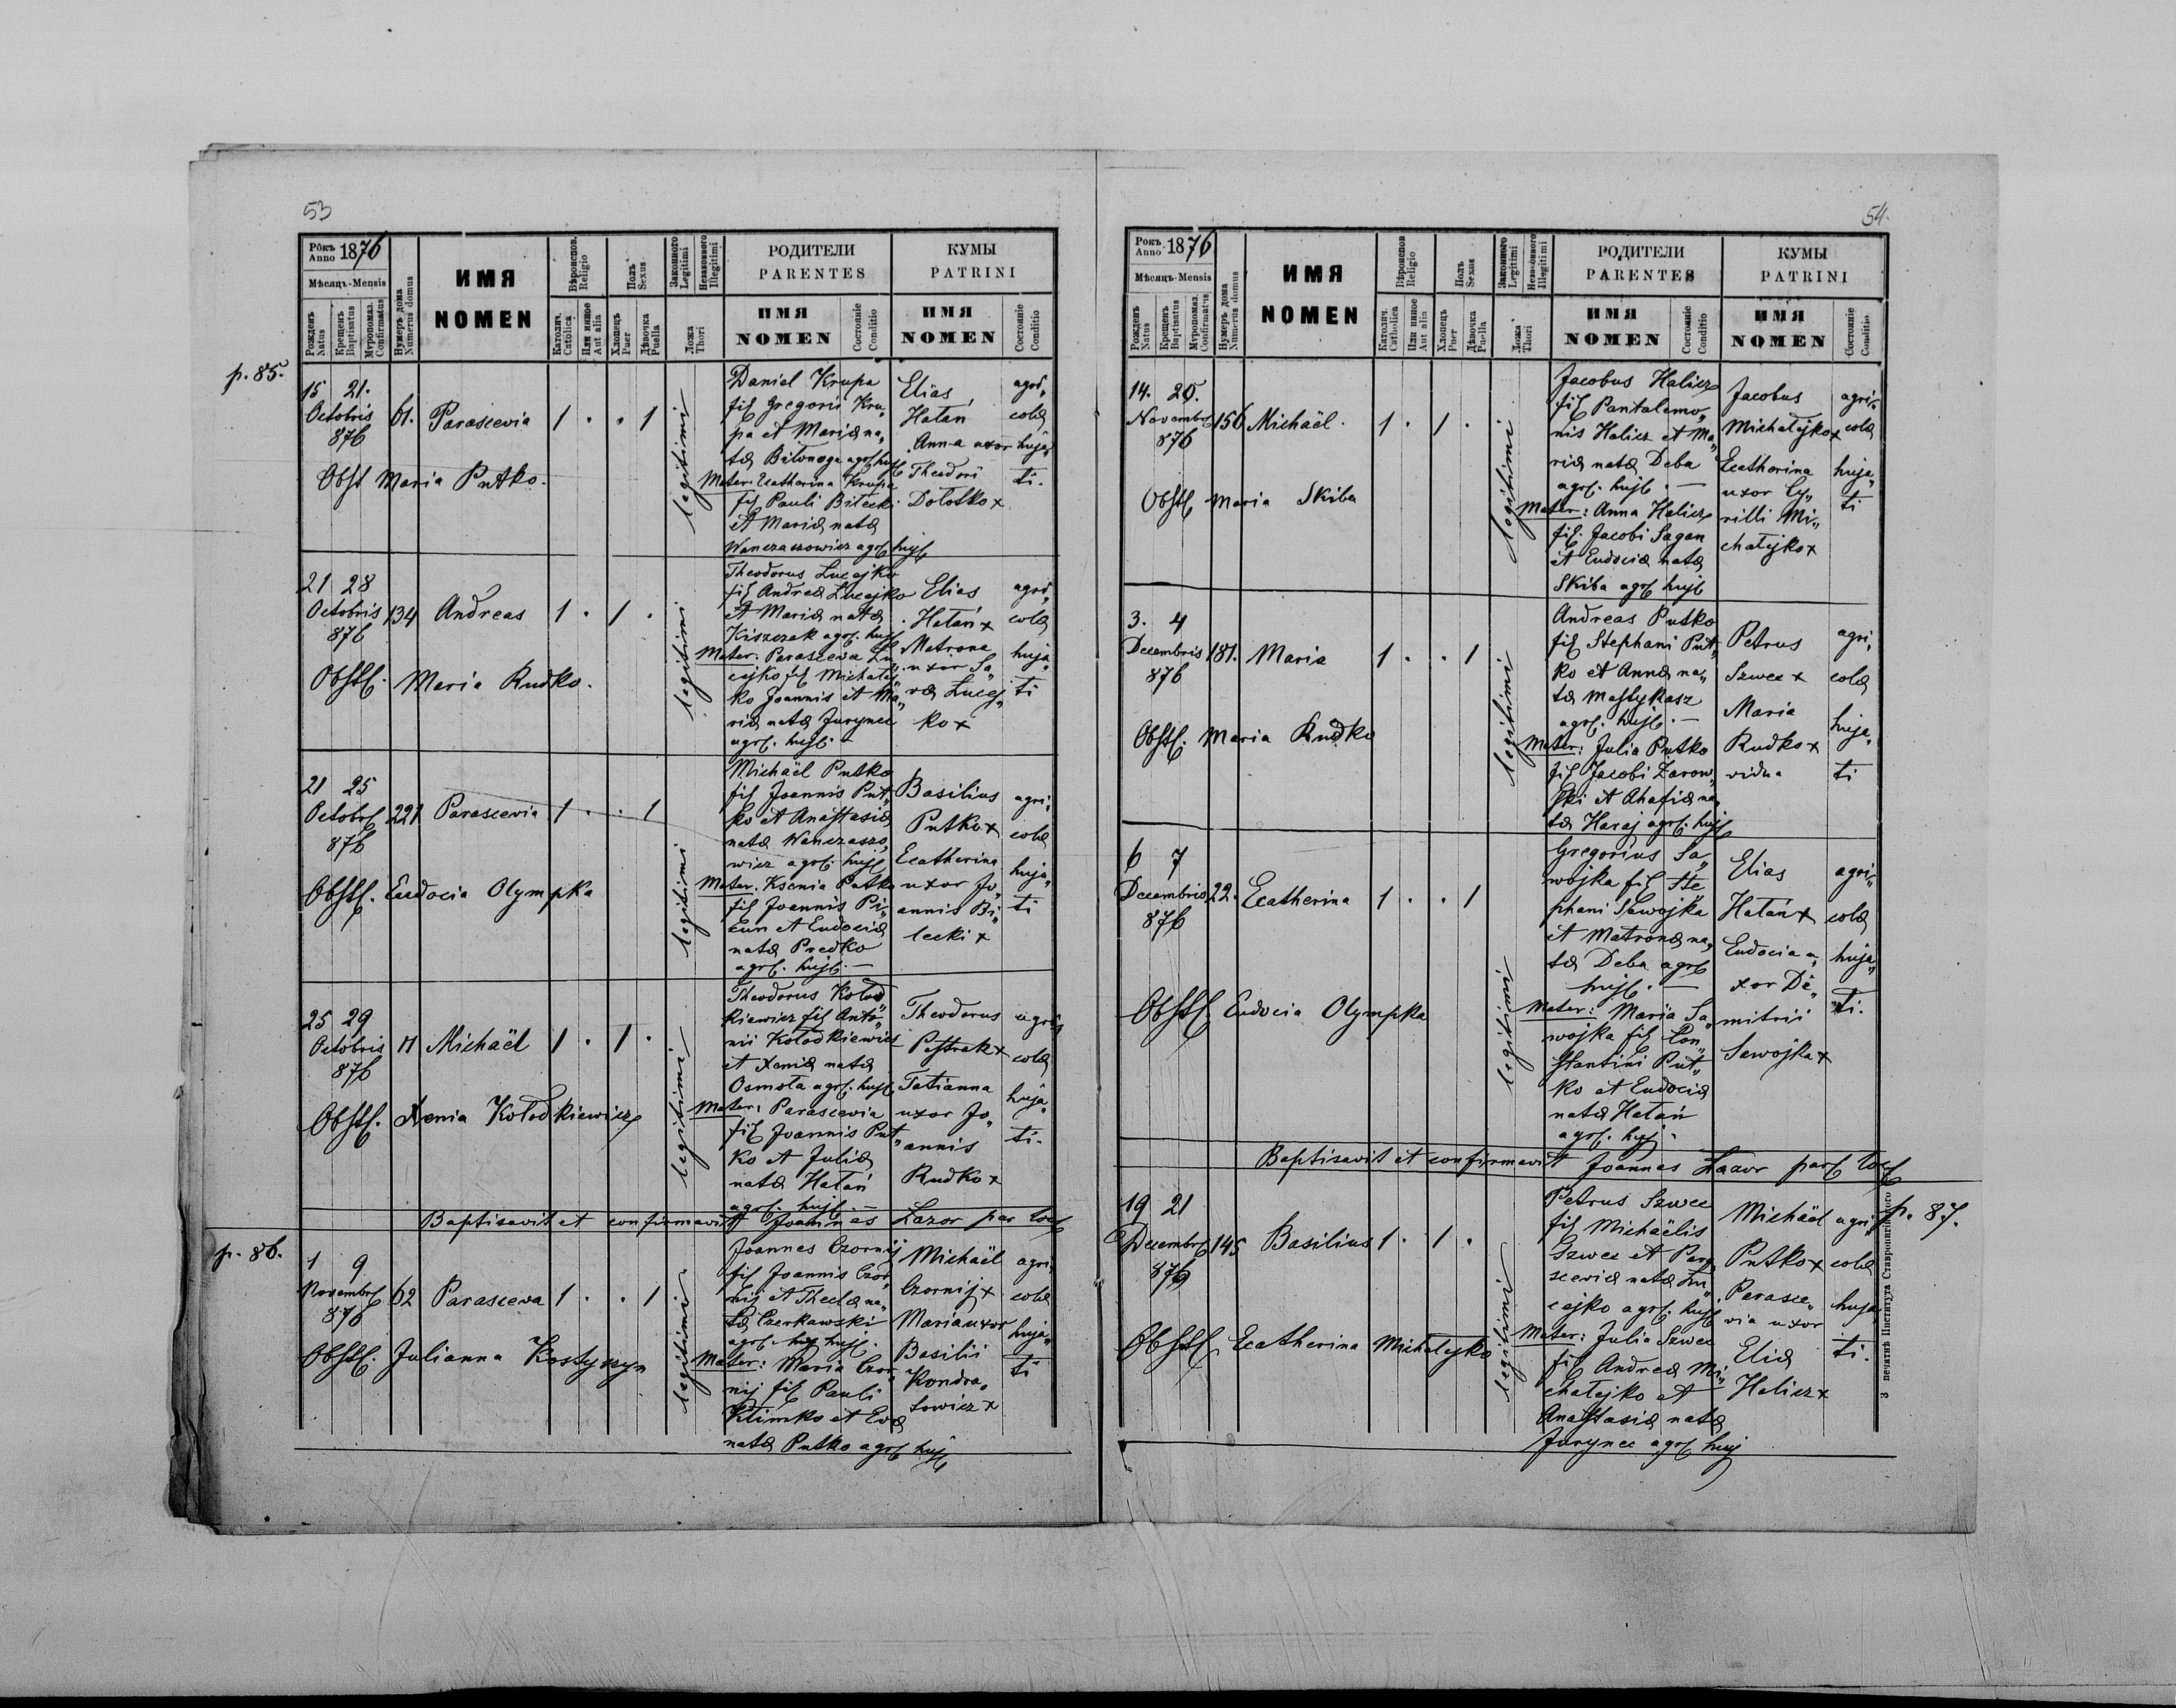 53
Рôкъ Anno 1876
Мѣсяцъ-Mensis
Рожденъ Natus
Крещенъ Baptisatus
Мѵропомаз. Confirmatus
Нумеръ дома Numerus domus
ИМЯ
NOMEN
Вѣроиспов. Religio
Католич. Catolica
Или иное Aut alia
Полъ Sexus
Хлопець Puer
Дѣвочка Puella
Законного Legitimi
Незаконного Illegitimi
Ложа Thori
РОДИТЕЛИ
PARENTES
ИМЯ
NOMEN
Состояніе Conditio
КУМЫ
PATRINI
ИМЯ
NOMEN
Состояніе Conditio
p. 85.
15 21.
Octobris 61. Parascevia 1 . . 1
876
Obst Maria Putko.
legitimi
Daniel Krupa
fil Gregorii Kru„
pa et Mariæ na„
tæ Bilonoga agr. hujs
Mater: Ecatherina Krupa
fil Pauli Bilecki
et Mariæ natæ
Wanczaszowicz agr. hujs
Elias
Hałań
Anna uxor
Theodori
Dołotko x
agri„
colæ
huja„
ti.
21 28
Octobris 134 Andreas 1 . 1 .
876
Obstt. Maria Rudko.
legitimi
Theodorus Lucejko
fil Andreæ Lucejko
et Mariæ natæ
Kiszczak agr. hujs
Mater: Parasceva Lu„
cejko fil Michałej„
ko Joannis et Ma„
riæ natæ Jurynec
agr. hujs. —
Elias
Hałań x
Matrona
uxor Sa„
væ Lucej„
ko x
agri„
colæ
huja„
ti
21 25
Octobr 221 Parascevia 1 . . 1
876
Obstt. Eudocia Olympka
legitimi
Michaël Putko
fil Joannis Put„
ko et Anastasiæ
natæ Wanczaszo„
wicz agr. hujs
Mater. Ksenia Putko
fil Joannis Pi„
cun et Eudociæ
natæ Predko
agr. hujs. —
Basilius
Putko x
Ecatherina
uxor Jo„
annis Bi„
lecki x
agri„
colæ
huja„
ti
25 29
Octobris 17 Michaël 1 . 1 .
876
Obstt. Xenia Kołodkiewicz
legitimi
Theodorus Kołod„
kiewicz fil Anto„
nii Kołodkiewicz
et Xeniæ natæ
Osmoła agr. hujs
Mater: Parascevia
fil Joannis Put„
ko et Juliæ
natæ Hałań
agr. hujs. —
Theodorus
Pastrak x
Tatianna
uxor Jo„
annis
Rudko x
agri„
colæ
huja„
ti.
Baptisavit et confirmavit Joannes Lazor par loci
p. 86.
1 9
Novembr 62 Parasceva 1 . . 1
876
Obstt. Julianna Kostyszyn
legitimi.
Joannes Czornij
fil Joannis Czor„
nij et Theclæ na„
tæ Czerkawski
agr. hujs.
Mater: Maria Czor„
nij fil Pauli
Klimko et Evæ
natæ Putko agr. hujs
Michaël
Czornij x
Maria uxor
Basilii
Kondra„
towicz x
agri„
colæ
huja„
ti
54.
Рокъ Anno 1876
Мѣсяцъ-Mensis
Рожденъ Natus
Крещенъ Baptisatus
Мѵропомаз. Confirmatus
Нумеръ дома Numerus domus
ИМЯ
NOMEN
Вѣроиспов Religio
Католич. Catholica
Или иное Aut alia
Полъ Sexus
Хлопець Puer
Дѣвочка Puella
Законного Legitimi
Незаконного Illegitimi
Ложа Thori
РОДИТЕЛИ
PARENTES
ИМЯ
NOMEN
Состояніе Conditio
КУМЫ
PATRINI
ИМЯ
NOMEN
Состояніе Conditio
14. 20.
Novembr 156 Michaël. 1 . 1 .
876
Obstt Maria Skiba
legitimi
Jacobus Halicz
fil Pantalemo„
nis Halicz et Ma„
riæ natæ Deba
agr. hujs. —
Mater: Anna Halicz
fil. Jacobi Sagan
et Eudociæ natæ
Skiba agr hujs
Jacobus
Michałejko x
Ecatherina
uxor Cy„
rilli Mi„
chałejko x
agri„
colæ
huja„
ti
3. 4
Decembris 181. Maria 1 . . 1
876
Obstt. Maria Rudko
legitimi
Andreas Putko
fil Stephani Put„
ko et Annæ na„
tæ Mastykasz
agr. hujs. —
Mater: Julia Putko
fil Jacobi Zarow„
ski et Ahafiæ na„
tæ Haraj agr. hujs
Petrus
Szwec x
Maria
Rudko x
vidua
agri„
colæ
huja„
ti
6 7
Decembris 22. Ecatherina 1 . . 1
876
Obstt Eudocia Olympka
legitimi
Gregorius Sa„
wojka fil Ste„
phani Sawojka
et Matronæ na„
tæ Deba agr
hujs. —
Mater: Maria Sa„
wojka fil Con„
stantini Put„
ko et Eudociæ
natæ Hałań
agr. hujs.
Elias
Hałań x
Eudocia u„
xor De„
mitrii
Sawojka x
agri„
colæ
huja„
ti.
Baptisavit et confirmavit Joannes Lazor par loci
p. 87.
19 21
Decembr 145 Basilius 1 . 1 .
876
Obstt Ecatherina Michałejko
legitimi
Petrus Szwec
fil Michaëlis
Szwec et Para„
sceviæ natæ Lu„
cejko agr. hujs
Mater: Julia Szwec
fil Andreæ Mi„
chałejko et
Anastasiæ natæ
Jurynec agr huj
Michaël
Putko x
Parasce„
via uxor
Eliæ
Halicz x
agri„
colæ
huja„
ti.
З печатнѣ Института Ставропигійского